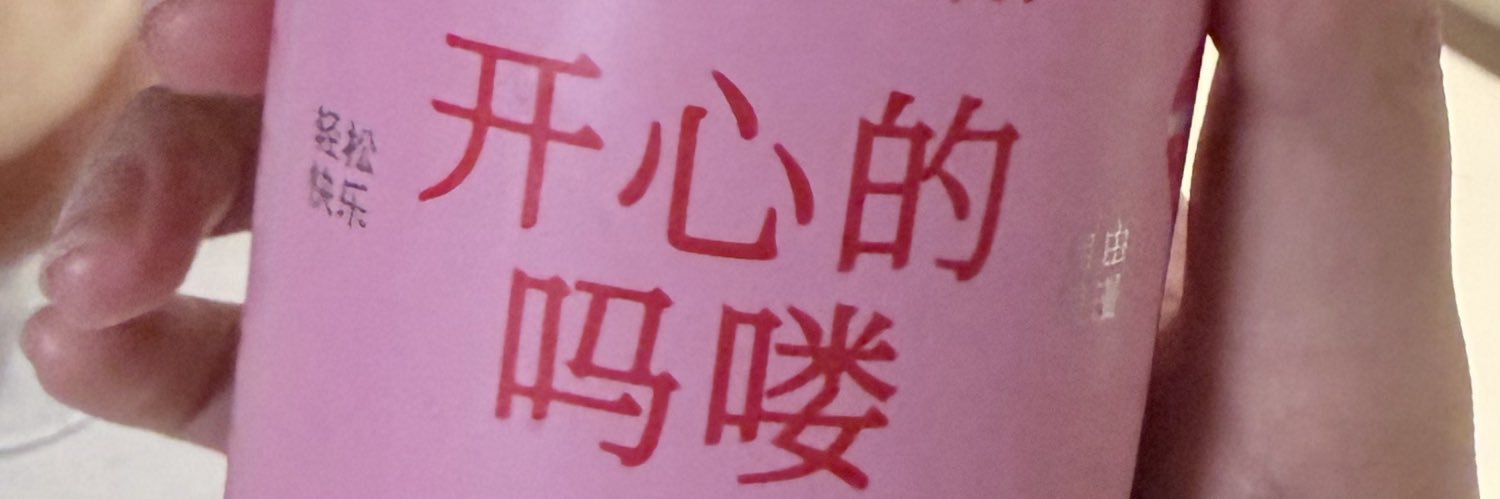 轻松
快乐
开心的
吗喽
由